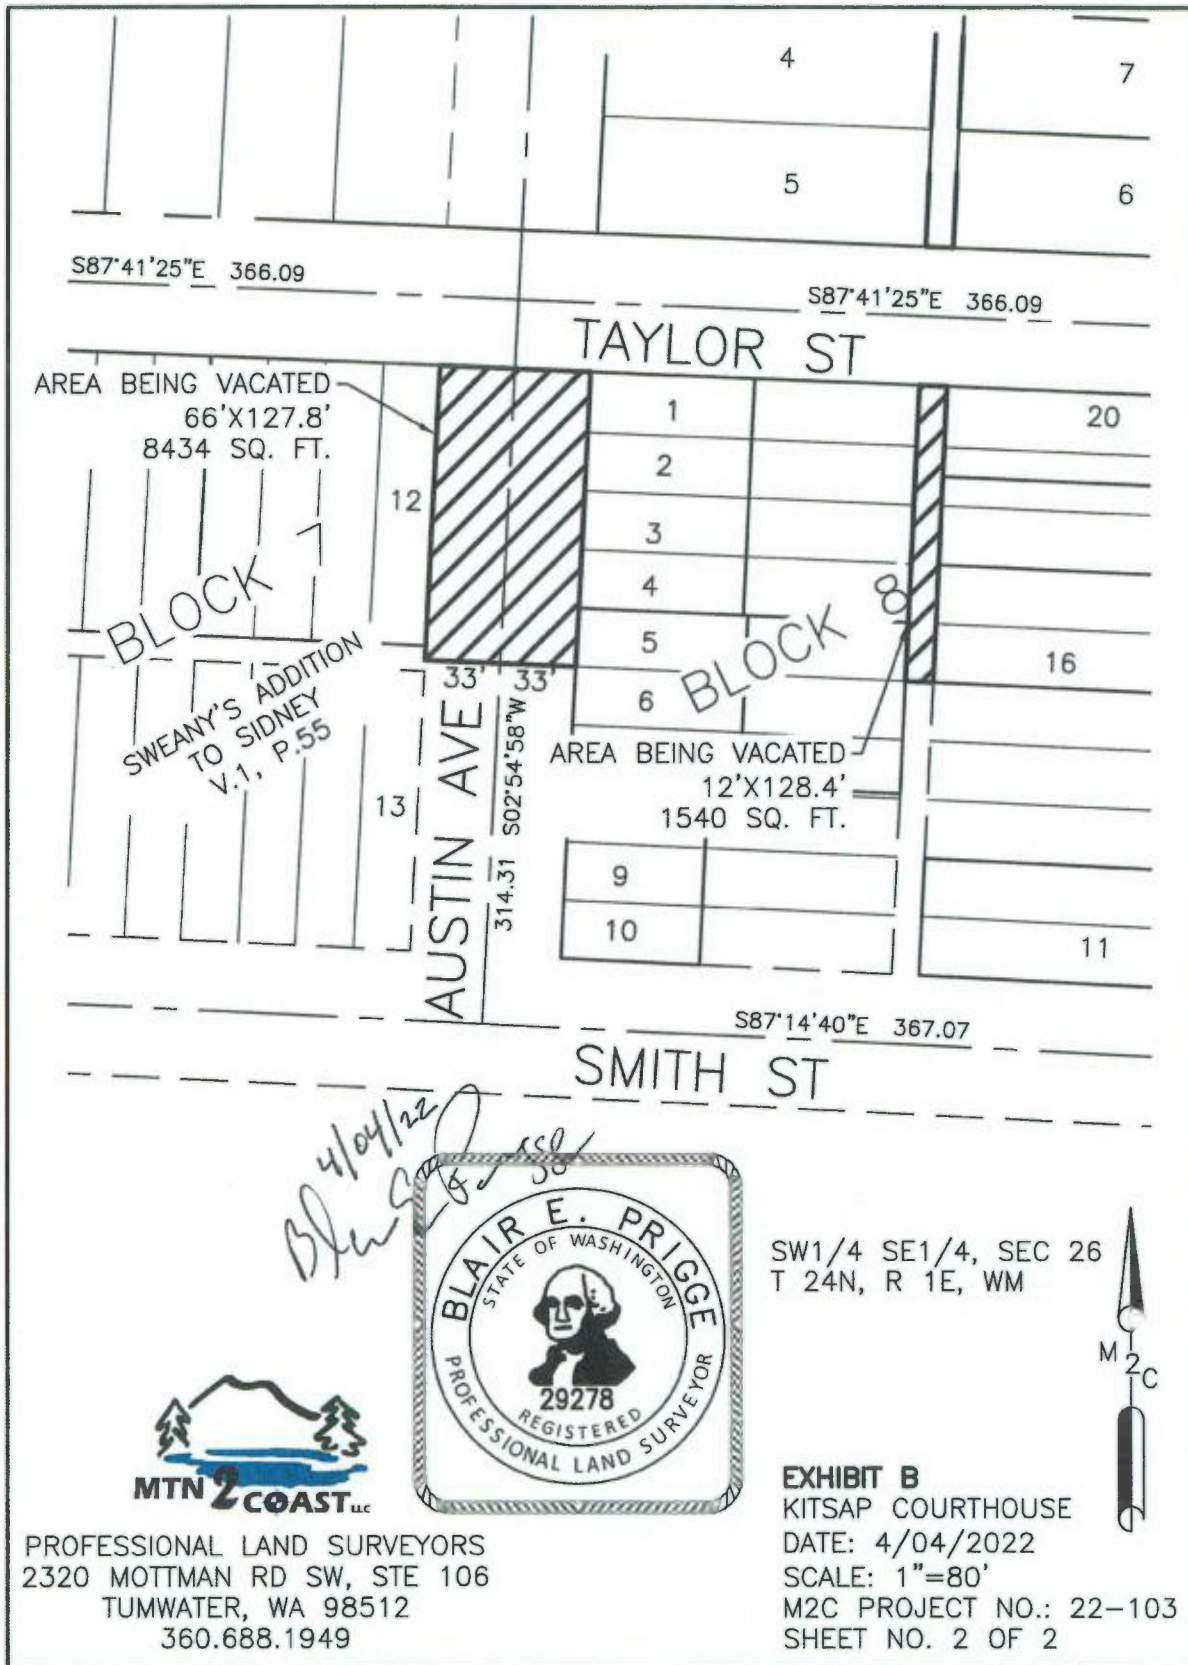 4
7
5
6
S87°41'25"E 366.09
S87°41'25"E 366.09
TAYLOR ST
AREA BEING VACATED
66'X127.8'
8434 SQ. FT.
12
1
2
3
4
5
6
20
16
BLOCK 7
BLOCK 8
SWEANY'S ADDITION
TO SIDNEY
V.1, P.55
33' 33'
AUSTIN AVE
314.31 S02°54'58"W
AREA BEING VACATED
12'X128.4'
1540 SQ. FT.
13
9
10
11
S87°14'40"E 367.07
SMITH ST
4/04/22
BLAIR E. PRIGGE
STATE OF WASHINGTON
29278
REGISTERED
PROFESSIONAL LAND SURVEYOR
SW1/4 SE1/4, SEC 26
T 24N, R 1E, WM
M2C
MTN 2 COAST LLC
PROFESSIONAL LAND SURVEYORS
2320 MOTTMAN RD SW, STE 106
TUMWATER, WA 98512
360.688.1949
EXHIBIT B
KITSAP COURTHOUSE
DATE: 4/04/2022
SCALE: 1"=80'
M2C PROJECT NO.: 22-103
SHEET NO. 2 OF 2